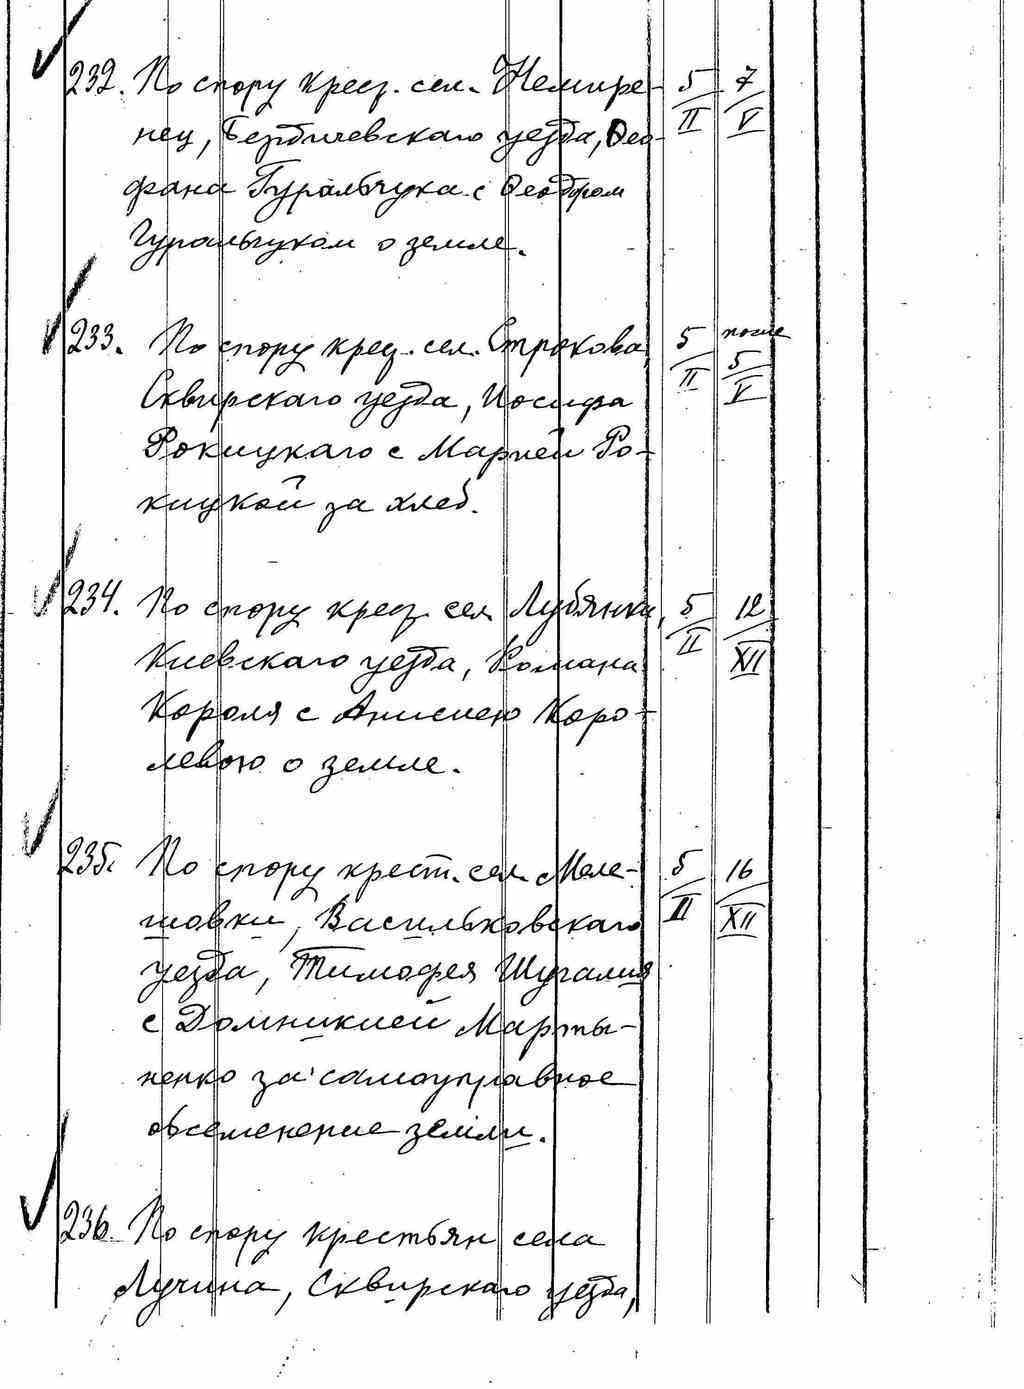 232. По спору крес. сел. Немире- 5/II 7/V
нец, Бердичевскаго уезда, Фео-
фана Гуральчука с Феодром
Гуральчуком о земле.
233. По спору крес. сел. Строкова, 5/II после 5/V
Сквирскаго уезда, Иосифа
Рокицкаго с Марией Ро-
кицкой за хлеб.
234. По спору крес. сел. Лубянки, 5/II 12/XII
Киевскаго уезда, Романа
Короля с Анисиею Коро-
левою о земле.
235. По спору крест. сел. Меле- 5/II 16/XII
шовки, Васильковскаго
уезда, Тимофея Шугалия
с Домникией Марты-
ненко за самоуправное
обсеменение земли.
236. По спору крестьян села
Лучина, Сквирскаго уезда,